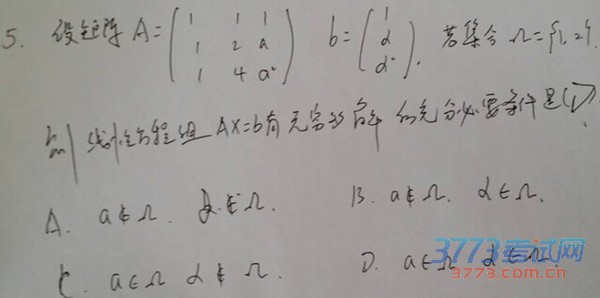 5. 设矩阵 A=(1 1 1
1 2 a
1 4 a²) b=(1
d
d²). 若集合 Ω={1,2}.
则线性方程组 AX=b有无穷多解 的充分必要条件是(D)
A. a∉Ω. d∉Ω. B. a∉Ω. d∈Ω.
C. a∈Ω d∉Ω. D. a∈Ω d∈Ω.
3773考试网
3773.com.cn